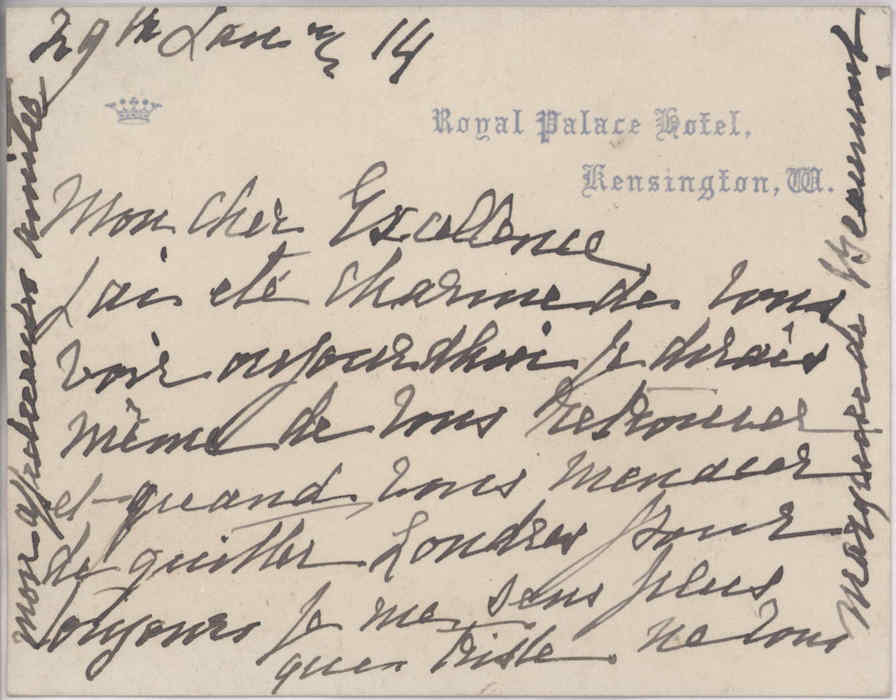 29th Jan 14
Royal Palace Hotel,
Kensington, W.
Mon cher Excellence
J'ai été charmé de vous
voir aujourdhui je dirais
même de vous retrouver
et quand vous menacer
de quitter Londres pour
toujours je me sens plus
que triste. ne vous
mon affectueuse amitié
Marquise de